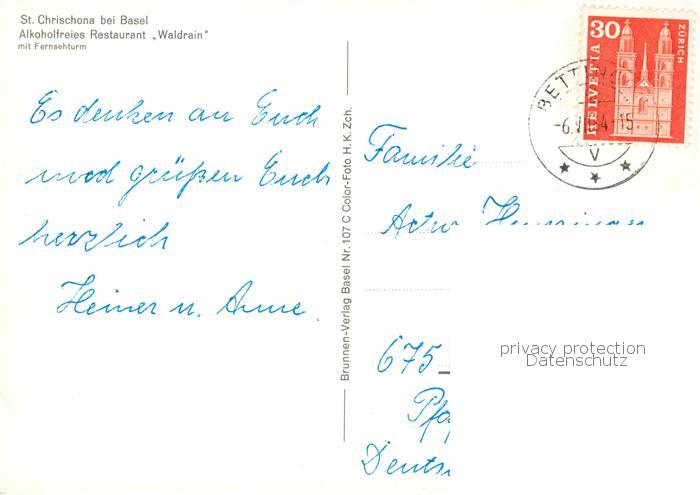 St. Chrischona bei Basel
Alkoholfreies Restaurant „Waldrain"
mit Fernsehturm
Es denken an Euch
und grüßen Euch
herzlich
Heiner u. Anne.
Brunnen-Verlag Basel Nr. 107 C Color-Foto H.K.Zch.
30
HELVETIA
ZÜRICH
-6. 4-15
V
Familie
675
privacy protection
Datenschutz